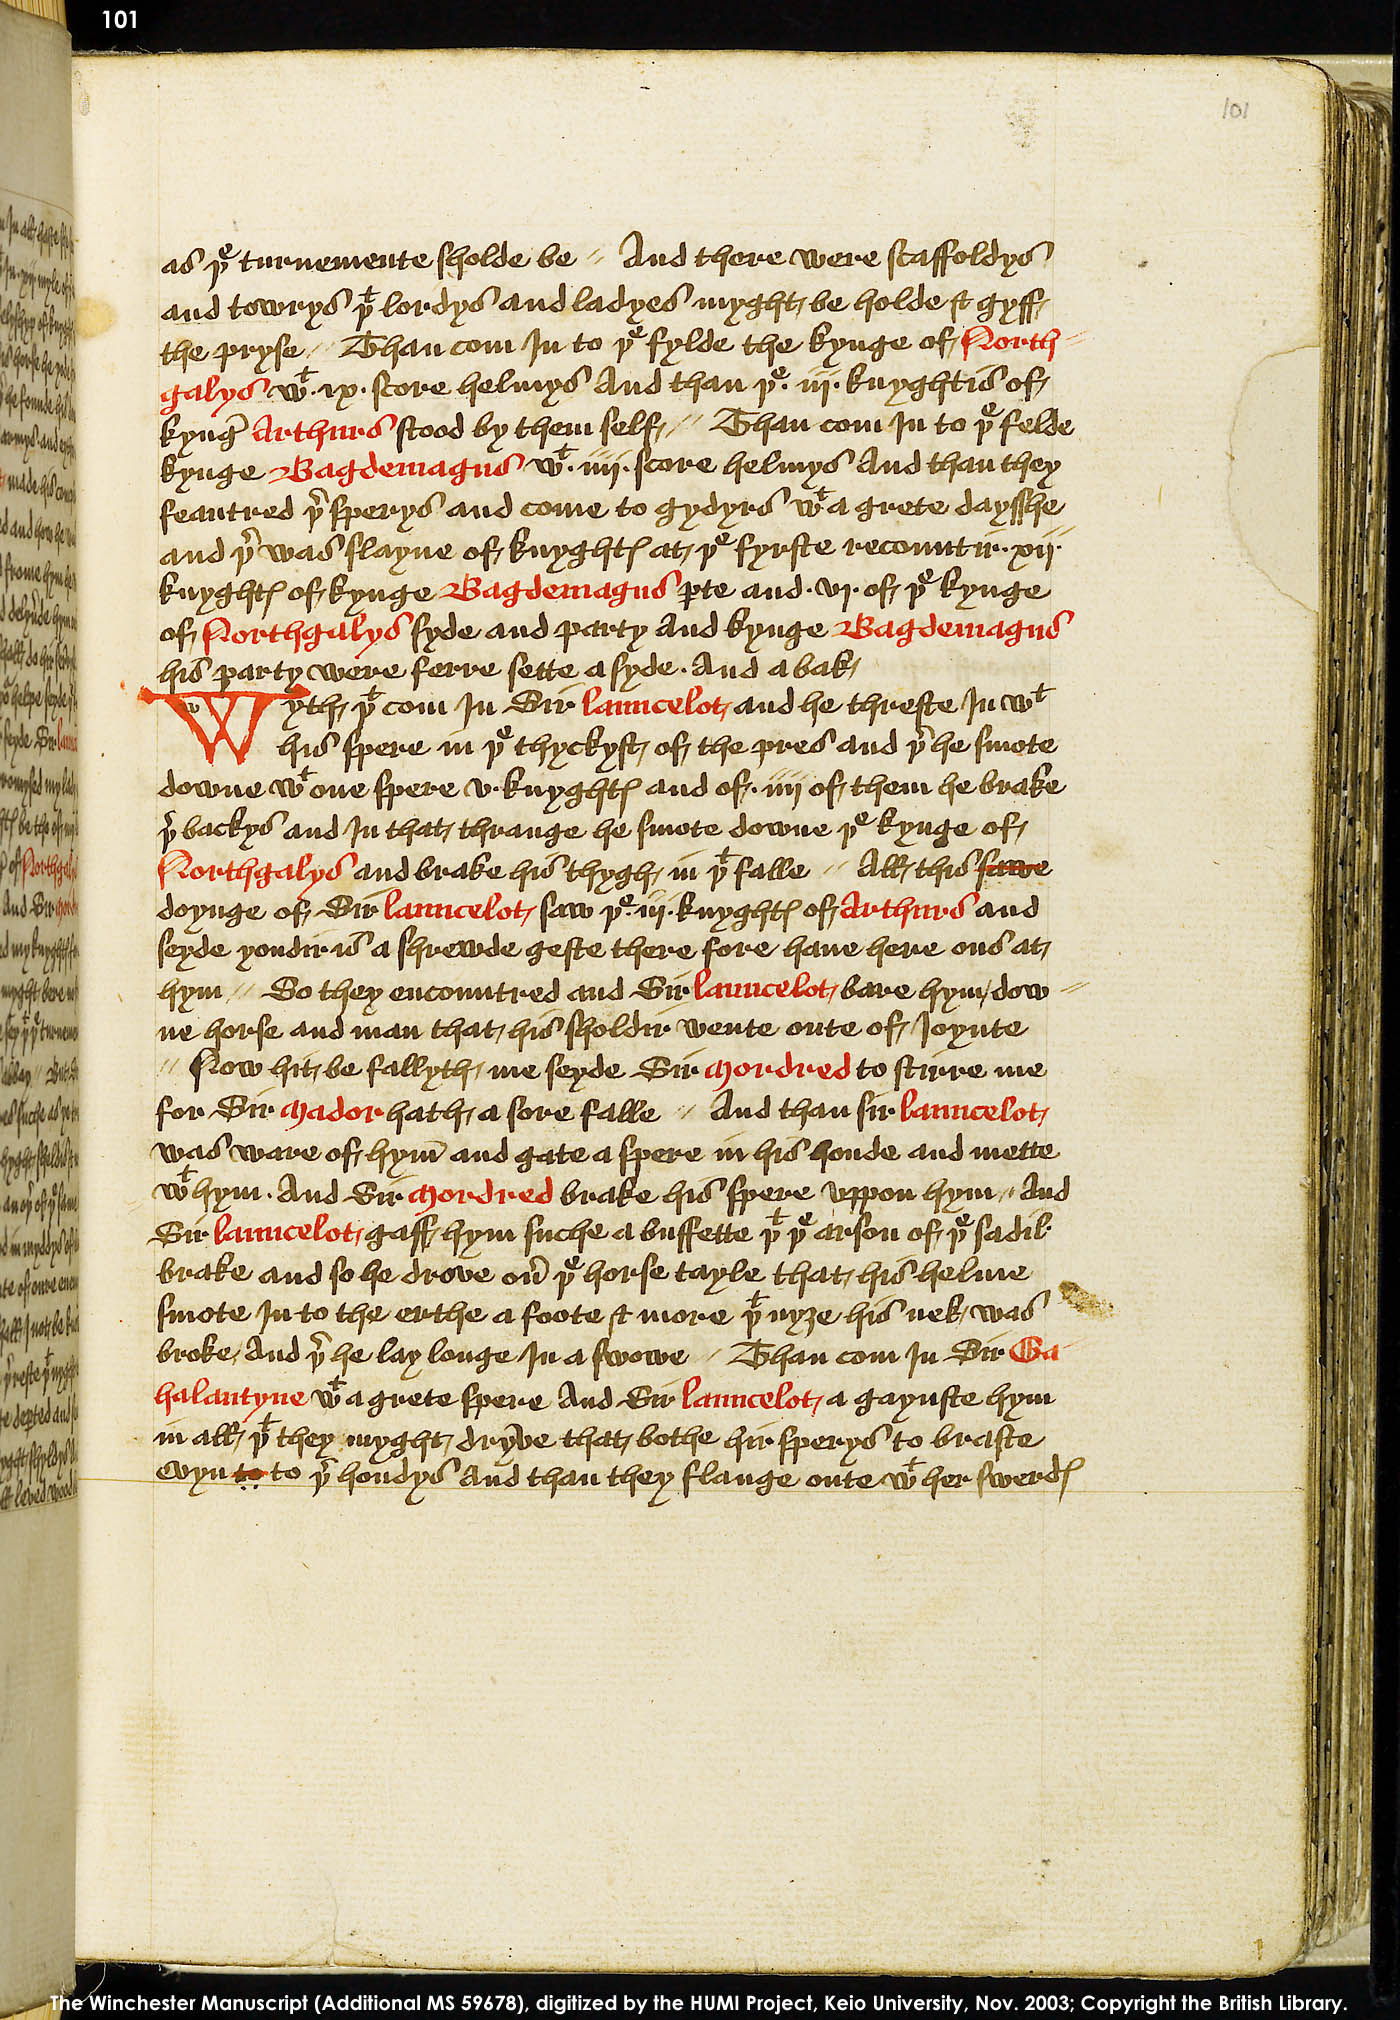 101
101
as þᵉ turnemente sholde be // And there were scaffoldys
and towrys þᵗ lordys and ladyes myght be holde & gyff
the pryse // Than com In to þᵉ fylde the kynge of North=
galys wᵗ .ix. score helmys And than þᵉ .iij. knyghtis of
kyngꝭ Arthurs stood by them self // Than com In to þᵉ felde
kynge Bagdemagus wᵗ .iiij. score helmys And than they
feautred þʳ sperys and come to gydyrs wᵗ a grete daysshe
and þʳ was slayne of knyghtꝭ at þᵉ fyrste recountir .xij.
knyghtꝭ of kynge Bagdemagus ꝑte and .vj. of þᵉ kynge
of Northgalys syde and party And kynge Bagdemagus
his party were ferre sette a syde . And a bak
Wyth þᵗ com In Sir launcelot and he threste In wᵗ
his spere in þᵉ thyckyst of the pres and þʳ he smote
downe wᵗ one spere v. knyghtꝭ and of .iiij of them he brake
þʳ backys and In that thrange he smote downe þᵉ kynge of
Northgalys and brake his thygh in þᵗ falle // All this sawe
doynge of Sir launcelot saw þᵉ .iij. knyghtꝭ of Arthurs and
seyde yondir is a shrewde geste there fore haue here ons at
hym // So they encountred and Sir launcelot bare hym dow=
ne horse and man that his sholdir wente oute of Joynte
// Now hit be fallyth me seyde Sir Mordred to stirre me
for Sir Mador hath a sore falle // And than sir launcelot
was ware of hym̄ and gate a spere in his honde and mette
wᵗ hym . And Sir Mordred brake his spere vppon hym // And
Sir launcelot gaff hym suche a buffette þᵗ þᵉ arson of þᵉ sadil
brake and so he drove oũ þᵉ horse tayle that his helme
smote In to the erthe a foote & more þᵗ nyȝe his nek was
broke And þʳ he lay longe In a swowe // Than com In Sir Ga
halantyne wᵗ a grete spere And Sir launcelot a gaynste hym
in all þᵗ they myght dryve that bothe hir sperys to braste
evyn to to þʳ hondys And than they flange oute wᵗ her swerdꝭ
The Winchester Manuscript (Additional MS 59678), digitized by the HUMI Project, Keio University, Nov. 2003; Copyright the British Library.